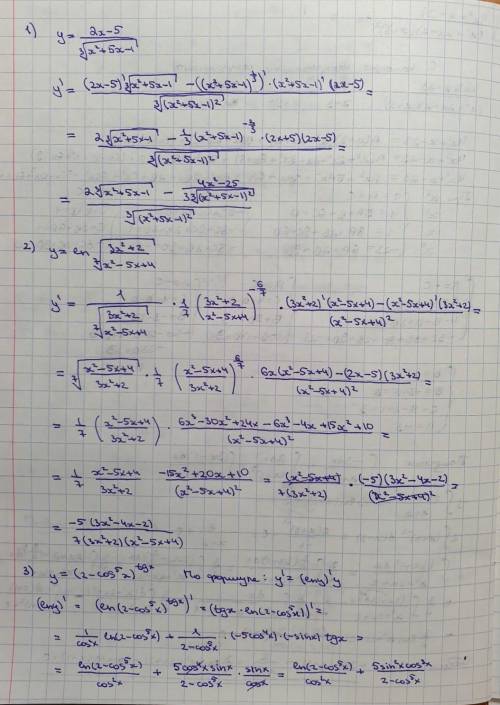 1) y = (2x-5)/∛(x²+5x-1)
y' = ((2x-5)'∛(x²+5x-1) - ((x²+5x-1)^(1/3))'·(x²+5x-1)'(2x-5))/∛((x²+5x-1)²) =
= (2∛(x²+5x-1) - 1/3(x²+5x-1)^(-2/3)·(2x+5)(2x-5))/∛((x²+5x-1)²) =
= (2∛(x²+5x-1) - (4x²-25)/(3∛((x²+5x-1)²)))/∛((x²+5x-1)²)
2) y = ln ⁷√((3x²+2)/(x²-5x+4))
y' = 1/⁷√((3x²+2)/(x²-5x+4)) · 1/7 ((3x²+2)/(x²-5x+4))^(-6/7) · ((3x²+2)'(x²-5x+4)-(x²-5x+4)'(3x²+2))/(x²-5x+4)² =
= ⁷√((x²-5x+4)/(3x²+2)) · 1/7 ((x²-5x+4)/(3x²+2))^(6/7) · (6x(x²-5x+4)-(2x-5)(3x²+2))/(x²-5x+4)² =
= 1/7 ((x²-5x+4)/(3x²+2)) · (6x³-30x²+24x-6x³-4x+15x²+10)/(x²-5x+4)² =
= 1/7 (x²-5x+4)/(3x²+2) (-15x²+20x+10)/(x²-5x+4)² = (x²-5x+4)/(7(3x²+2)) · ((-5)(3x²-4x-2))/(x²-5x+4)² =
= (-5(3x²-4x-2))/(7(3x²+2)(x²-5x+4))
3) y = (2-cos⁵x)^(tgx) По формуле: y' = (lny)'y
(lny)' = (ln(2-cos⁵x)^(tgx))' = (tgx·ln(2-cos⁵x))' =
= 1/cos²x ln(2-cos⁵x) + 1/(2-cos⁵x) · (-5cos⁴x)·(-sinx) tgx =
= ln(2-cos⁵x)/cos²x + (5cos⁴x sinx)/(2-cos⁵x) · sinx/cosx = ln(2-cos⁵x)/cos²x + (5sin²x cos³x)/(2-cos⁵x)